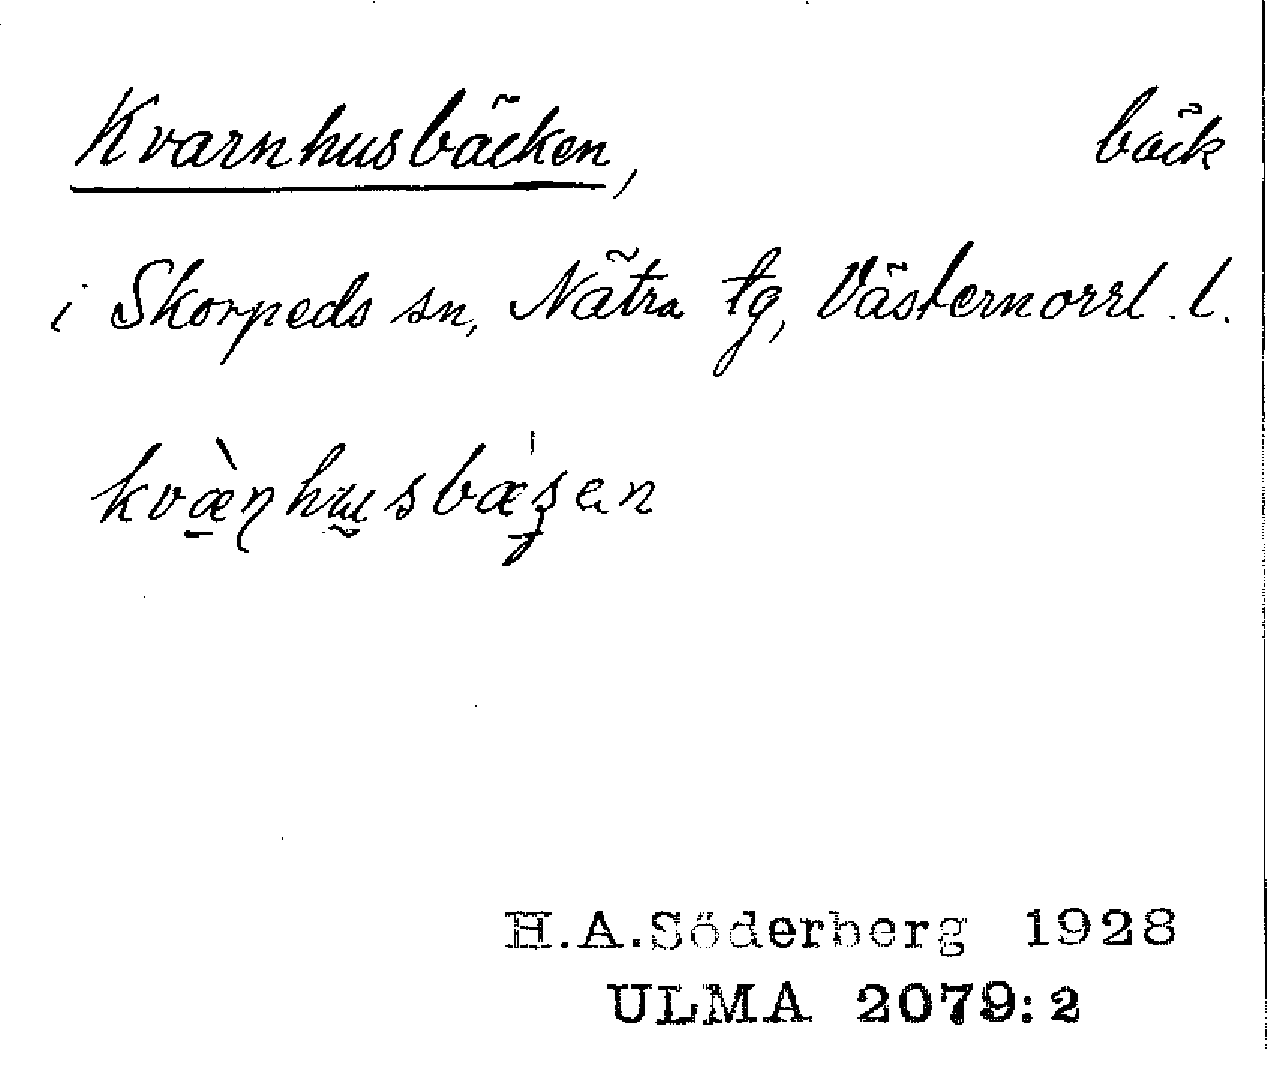 Kvarnhusbäcken, bäck
i Skorpeds sn, Nätra tg, Västernorrl. l.
kvæ̠̀ɳhʉsbæ̍ʂen
H.A.Söderberg 1928
ULMA 2079:2